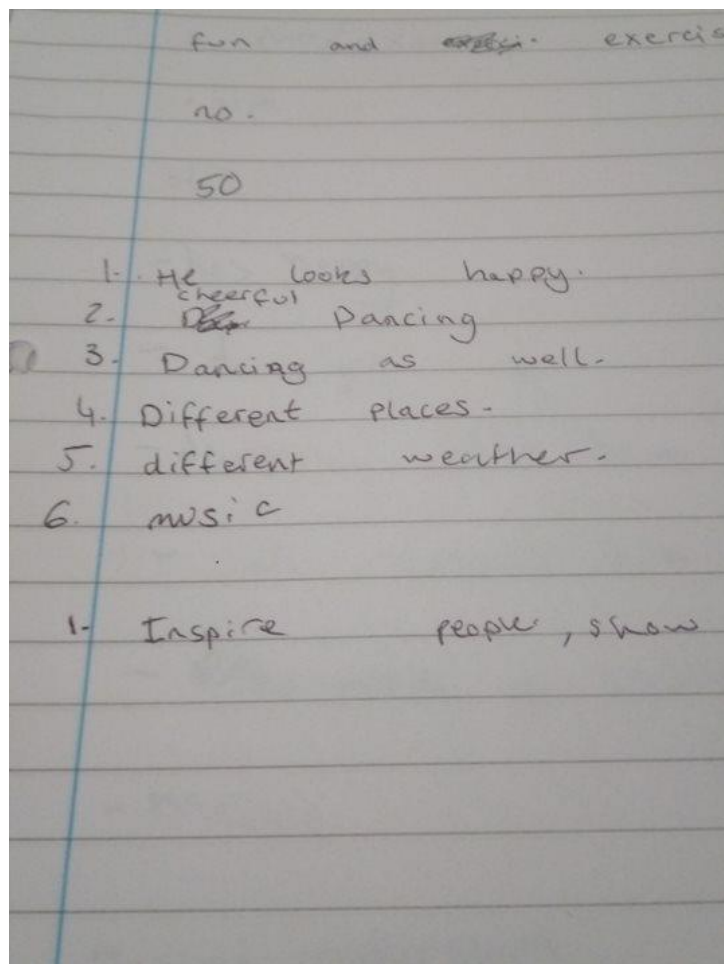 fun and exercis
no.
50
1. He looks happy.
cheerful
2. Dancing
3. Dancing as well.
4. Different places.
5. different weather.
6. music
1- Inspire people, show